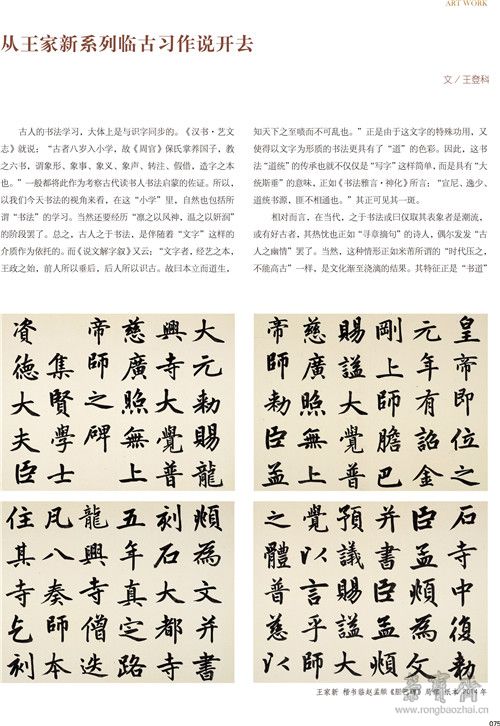 ART WORK
从王家新系列临古习作说开去
文／王登科
古人的书法学习，大体上是与识字同步的。《汉书·艺文
志》就说：“古者八岁入小学，故《周官》保氏掌养国子，教
之六书，谓象形、象事、象义、象声、转注、假借，造字之本
也。”一般都将此作为考察古代读书人书法启蒙的佐证。所以，
以我们今天书法的视角来看，在这“小学”里，自然也包括所
谓“书法”的学习。当然还要经历“凛之以风神，温之以妍润”
的阶段罢了。总之，古人之于书法，是伴随着“文字”这样的
介质作为依托的。而《说文解字叙》又云：“文字者，经艺之本，
王政之始，前人所以垂后，后人所以识古。故曰本立而道生，
知天下之至啧而不可乱也。”正是由于这文字的特殊功用，又
使得以文字为形质的书法更具有了“道”的色彩。因此，这书
法“道统”的传承也就不仅仅是“写字”这样简单，而是具有“大
统斯垂”的意味，正如《书法雅言·神化》所言：“宣尼、逸少，
道统书源，匪不相通也。”其正可见其一斑。
相对而言，在当代，之于书法或曰仅取其表象者是潮流，
或有好古者，其热忱也正如“寻章摘句”的诗人，偶尔发发“古
人之幽情”罢了。当然，这种情形正如米芾所谓的“时代压之，
不能高古”一样，是文化渐至浇漓的结果。其特征正是“书道”
大元勅賜龍
興寺大覺普
慈廣照無上
帝師之碑
集賢學士
資德大夫臣
皇帝即位之
元年有詔金
剛上師膽巴
賜謚大覺普
慈廣照無上
帝師勅臣孟
頫為文并書
刻石大都寺
五年真定路
龍興寺僧迭
凡八奏師本
住其寺乞刻
石寺中復勅
臣孟頫為文
并書臣孟頫
預議賜謚大
覺以言乎師
之體普慈以
王家新 楷书临赵孟頫《胆巴碑》局部 纸本 2014年
荣宝斋
www.rongbaozhai.cn
075